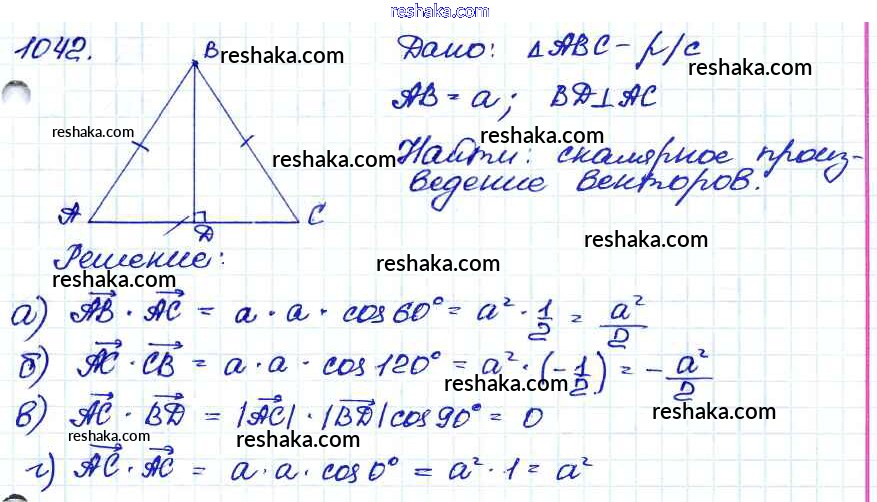 reshaka.com
1042.
B
reshaka.com
Дано: △ABC – р/с
reshaka.com
AB = a; BD⊥AC
reshaka.com
reshaka.com
Найти: скалярное произ-
reshaka.com
ведение векторов.
A D C
reshaka.com
Решение:
reshaka.com
reshaka.com
а) AB→ · AC→ = a · a · cos 60° = a² · 1/2 = a²/2
б) AC→ · CB→ = a · a · cos 120° = a² · (-1/2) = -a²/2
reshaka.com
в) AC→ · BD→ = |AC→| · |BD→| cos 90° = 0
reshaka.com
reshaka.com
reshaka.com
г) AC→ · AC→ = a · a · cos 0° = a² · 1 = a²
reshaka.com